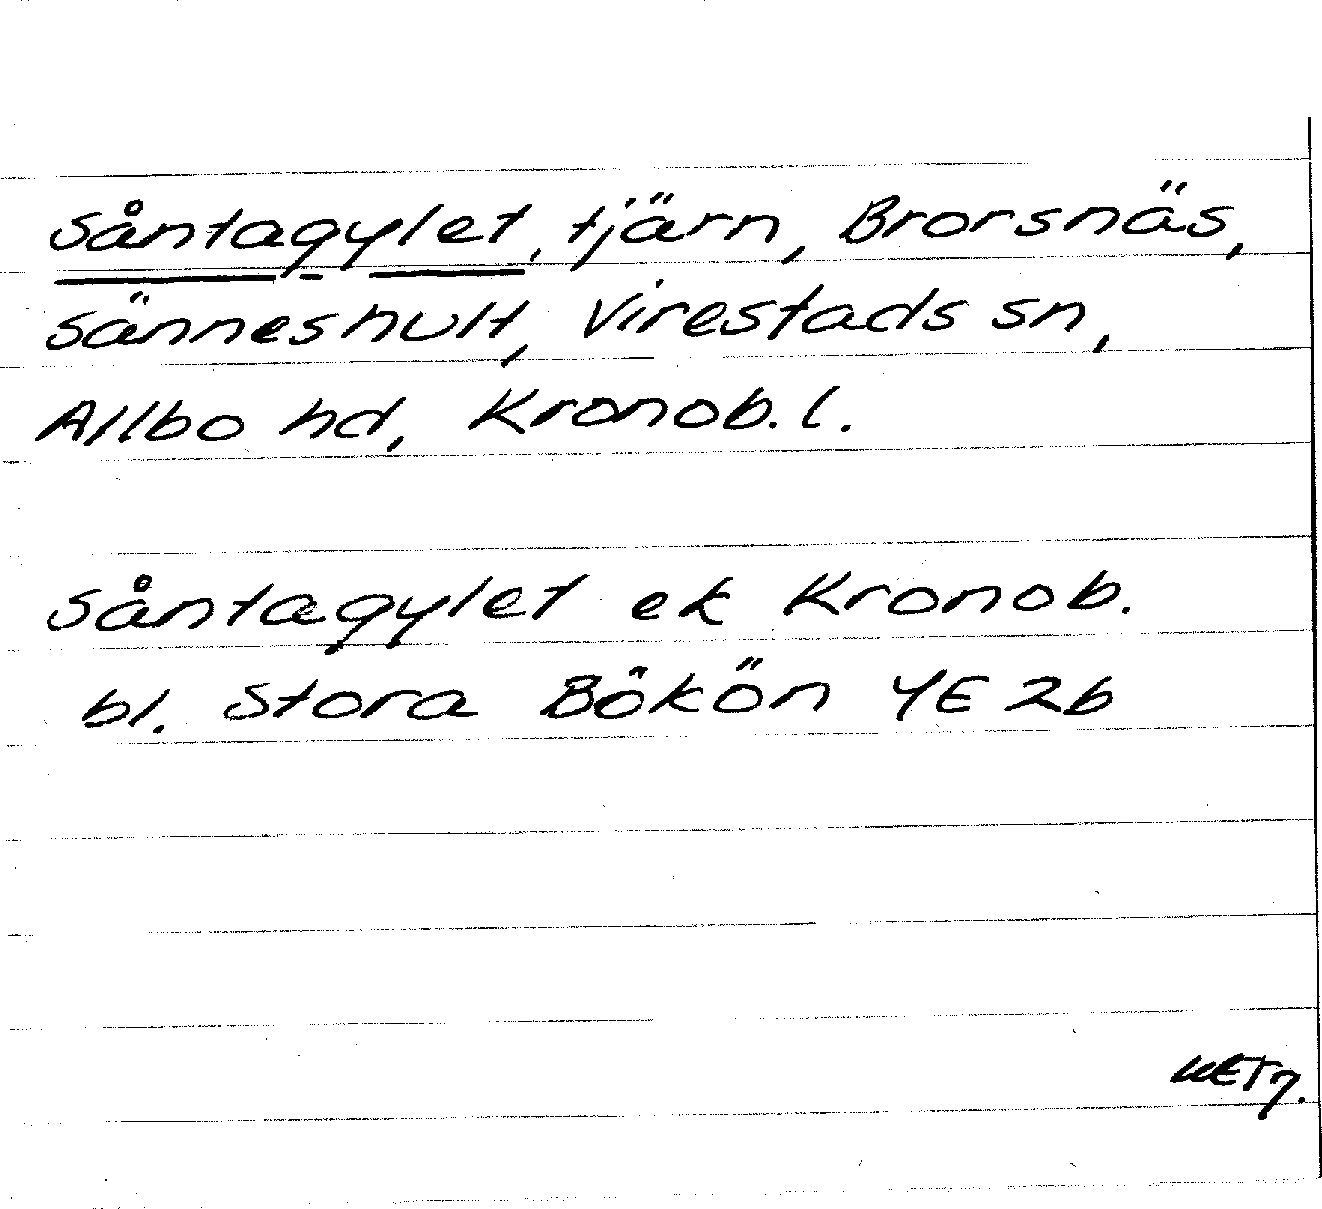 Såntagylet, tjärn, Brorsnäs,
Sänneshult, Virestads sn,
Allbo hd, Kronob. l.
Såntagylet ek Kronob.
bl. Stora Bökön 4E 2b